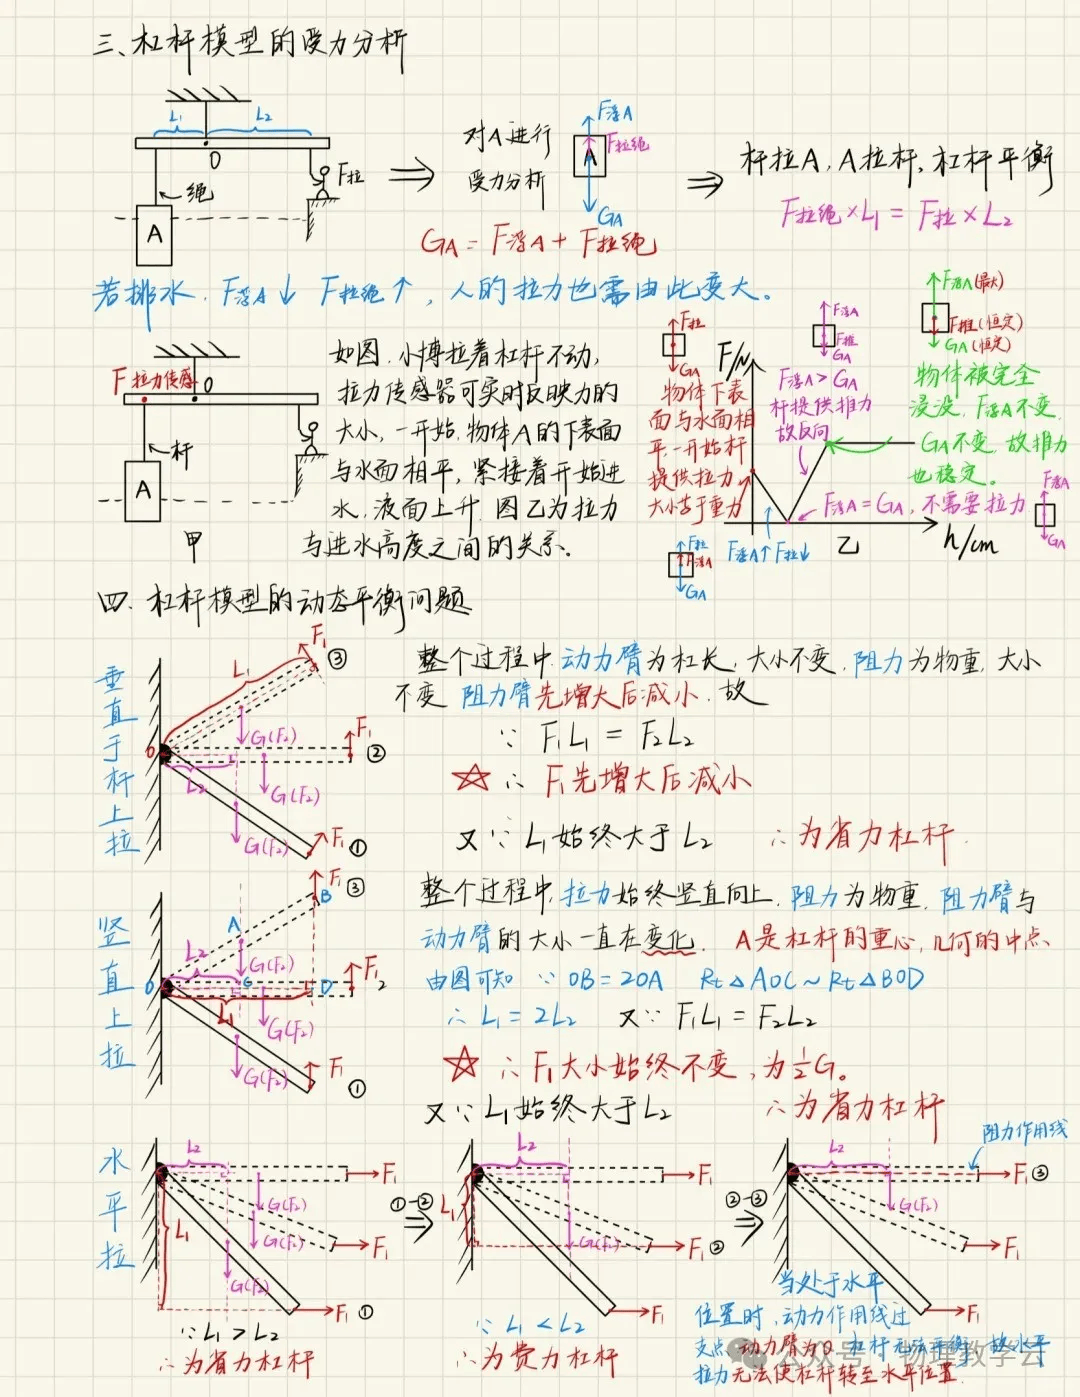 三、杠杆模型的受力分析
L₁ L₂
O
F拉
绳
A
对A进行
受力分析
F浮A
F拉绳
A
GA
GA = F浮A + F拉绳
杆拉A, A拉杆, 杠杆平衡
F拉绳×L₁ = F拉×L₂
若排水, F浮A↓ F拉绳↑, 人的拉力也需由此变大。
F拉力传感
O
杆
A
甲
如图,小博拉着杠杆不动,
拉力传感器可实时反映力的
大小,一开始,物体A的下表面
与水面相平,紧接着开始进
水,液面上升,图乙为拉力
与进水高度之间的关系。
F拉
GA
物体下表
面与水面相
平,一开始杆
提供拉力,
大小等于重力
F/N
F浮A
F推
GA
F浮A>GA
杆提供推力
故反向
F浮A(最大)
F推(恒定)
GA(恒定)
物体被完全
浸没,F浮A不变,
GA不变,故推力
也稳定。
F浮A=GA,不需要拉力
F浮A
GA
F拉
F浮A
GA
F浮A↑F拉↓
乙
h/cm
四、杠杆模型的动态平衡问题
垂直于杆上拉
F₁ ③
L₁
G(F₂)
F₁ ②
O
L₂
G(F₂)
G(F₂)
F₁ ①
整个过程中,动力臂为杠长,大小不变,阻力为物重,大小
不变,阻力臂先增大后减小,故
∵ F₁L₁ = F₂L₂
☆ ∴ F₁先增大后减小
又∵ L₁始终大于L₂ ∴为省力杠杆.
竖直上拉
F₁ ③
B
A
L₂
G(F₂)
F₁ 2
O C D
L₁
G(F₂)
G(F₂)
F₁ ①
整个过程中,拉力始终竖直向上,阻力为物重,阻力臂与
动力臂的大小一直在变化. A是杠杆的重心,几何的中点
由图可知 ∵ OB=2OA Rt△AOC∽Rt△BOD
∴ L₁=2L₂ 又∵ F₁L₁=F₂L₂
☆ ∴ F₁大小始终不变,为½G。
又∵ L₁始终大于L₂ ∴为省力杠杆
水平拉
L₂
F₁
L₁
G(F₂)
G(F₂)
F₁
G(F₂)
F₁ ①
∵ L₁>L₂
∴为省力杠杆
①-②
L₂
F₁
L₁
G(F₂)
F₁ ②
F₁
∵ L₁<L₂
∴为费力杠杆
②-③
阻力作用线
L₂
F₁ ③
G(F₂)
F₁
F₁
当处于水平
位置时,动力作用线过
支点,动力臂为0,杠杆无法平衡,故水平
拉力无法使杠杆转至水平位置.
公众号 物理教学云